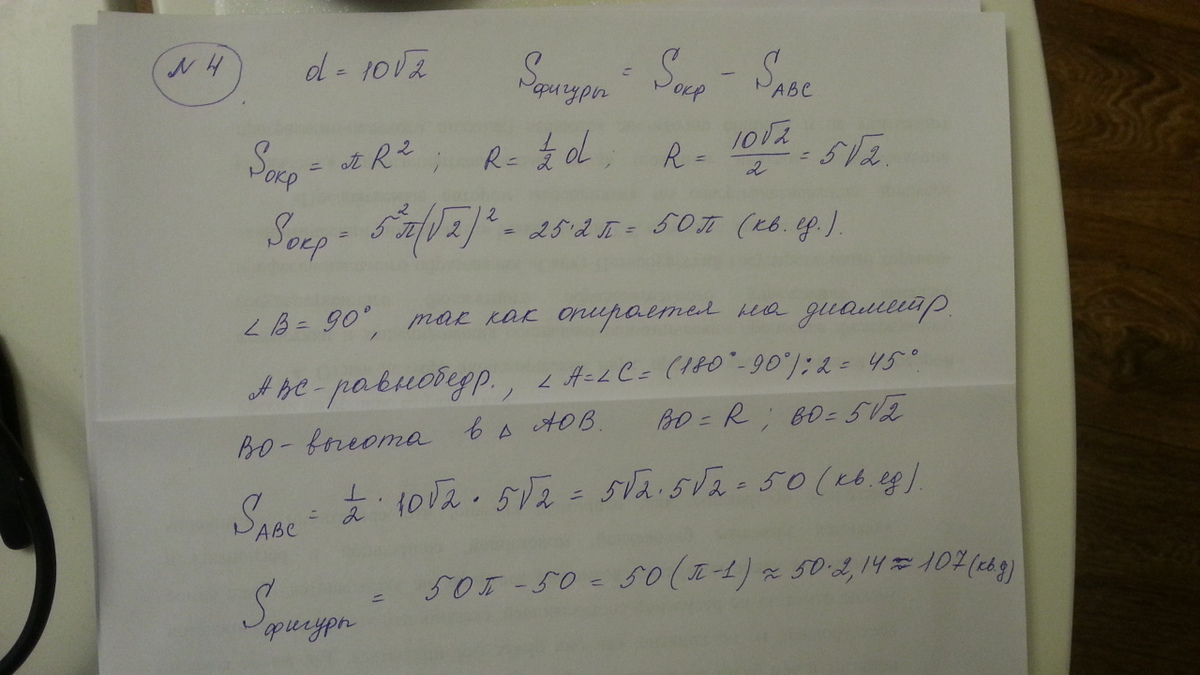 № 4 d = 10√2 Sфигуры = Sокр − SABC
Sокр = πR²; R = 1/2 d; R = 10√2/2 = 5√2.
Sокр = 5²π(√2)² = 25·2π = 50π (кв. ед.).
∠B = 90°, так как опирается на диаметр.
ABC - равнобедр., ∠A=∠C= (180°-90°):2 = 45°.
BO - высота в △ AOB. BO = R; BO = 5√2
SABC = 1/2 · 10√2 · 5√2 = 5√2·5√2 = 50 (кв. ед).
Sфигуры = 50π − 50 = 50(π-1) ≈ 50·2,14 ≈ 107 (кв.д)